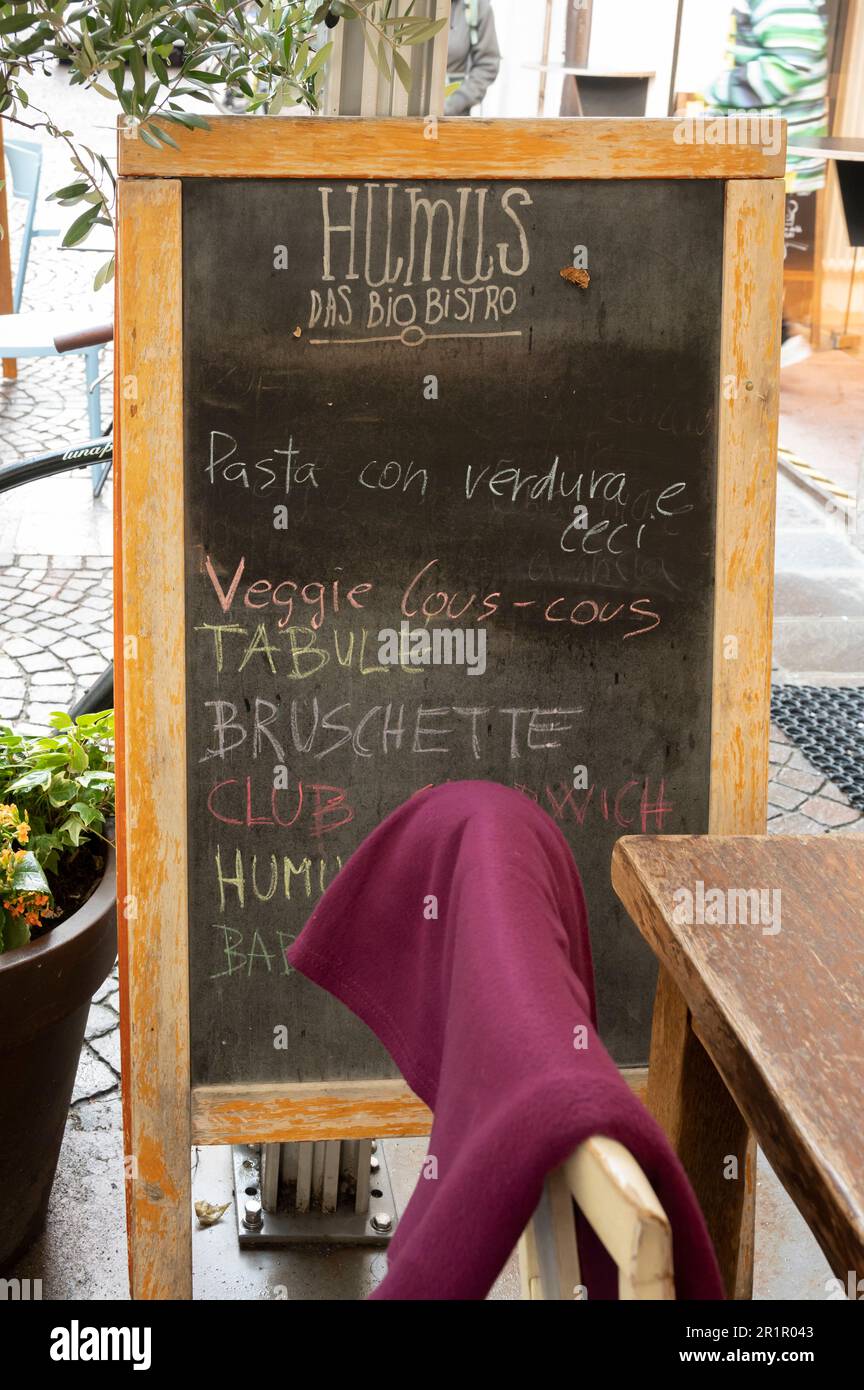 HUMUS
DAS BIO BISTRO
Pasta con verdura e
ceci
Veggie Cous-cous
TABULE
BRUSCHETTE
CLUB
HUMU
BAB
lunap
alamy
Image ID: 2R1R043
www.alamy.com